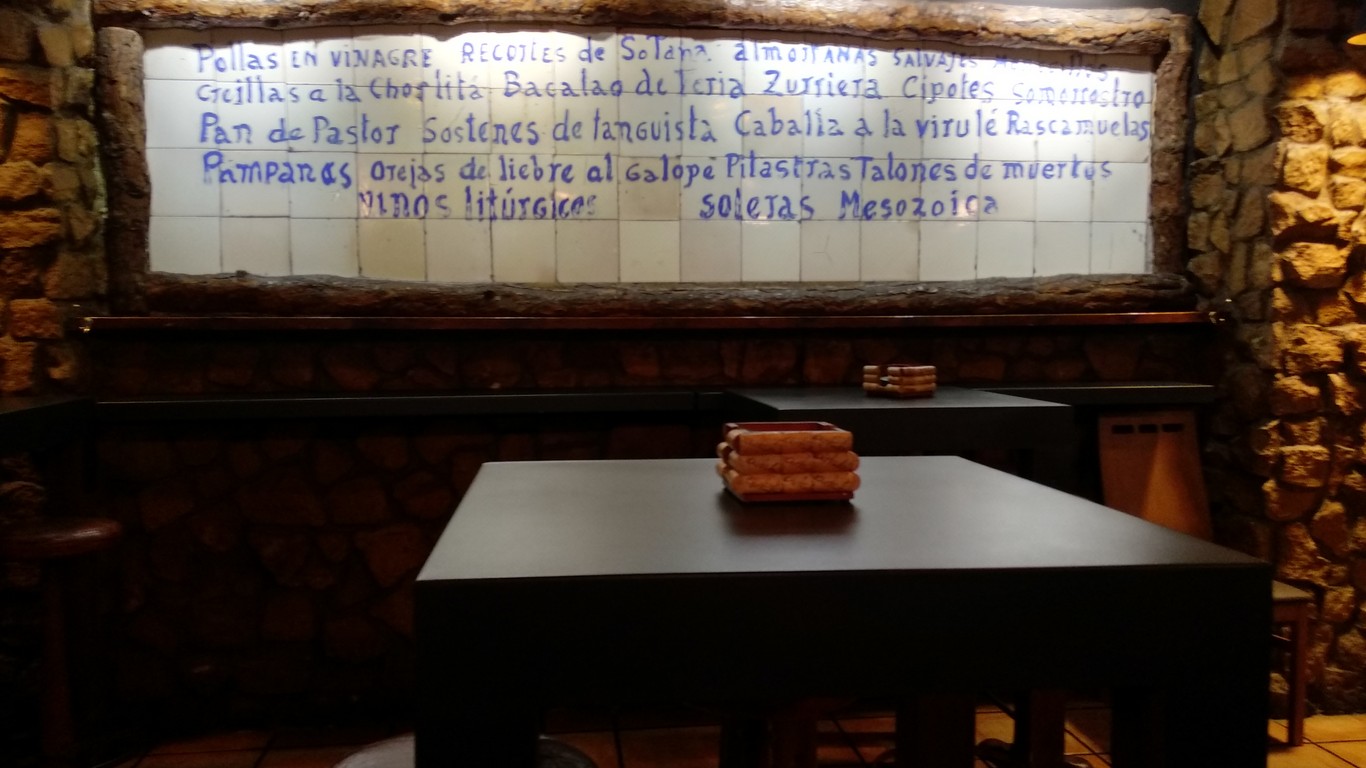 Pollas EN VINAGRE RECOJIES de SoTana almorranas SALVAJES
a la Chorlitá Bacalao de Iería Zurriera Cipotes Somorrostro
Pan de Pastor Sostenes de tanguista Caballa a la virulé Rascamuelas
Pámpanos orejas de liebre al Galope Pilastras Talones de muertos
vinos litúrgicos soleras Mesozoica